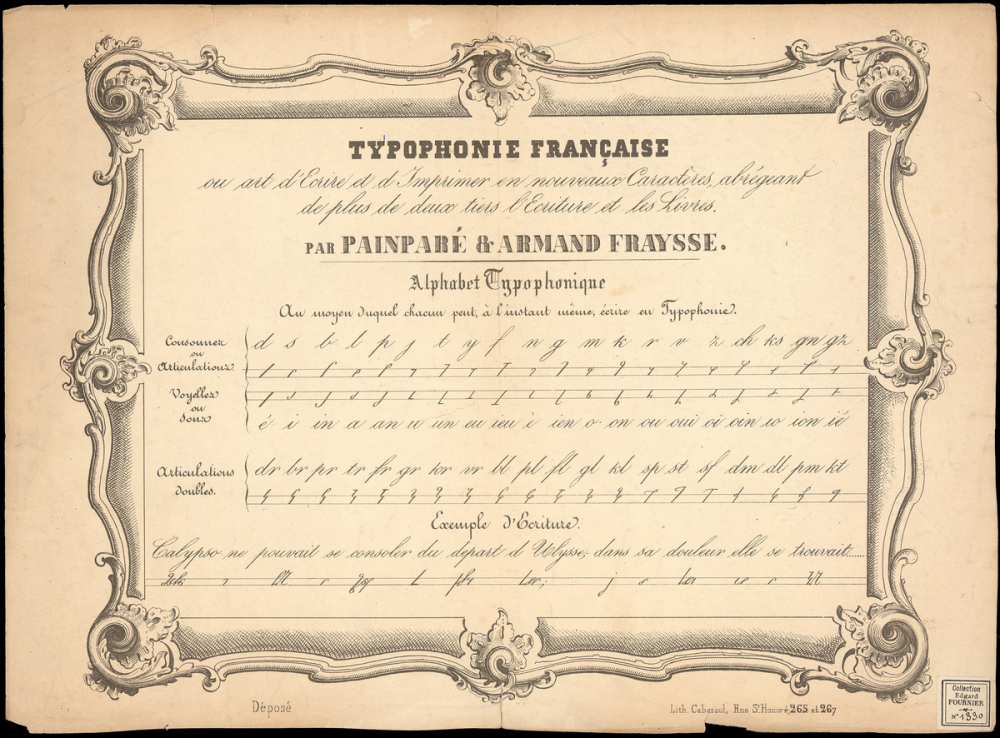 TYPOPHONIE FRANÇAISE
ou art d'Ecrire et d'Imprimer en nouveaux Caractères, abrégeant
de plus de deux tiers l'Ecriture et les Livres.
PAR PAINPARÉ & ARMAND FRAYSSE.
Alphabet Typophonique
Au moyen duquel chacun peut, à l'instant même, écrire en Typophonie.
Consonnes
ou
Articulations
d s b l p j t y f n g m k r v z ch ks gn gz
Voyelles
ou
Sons
é i in a an u un eu ieu è ien o on ou oui oi oin io ion ié
Articulations
doubles.
dr br pr tr fr gr kr vr bl pl fl gl kl sp st sf dm dl pm kt
Exemple d'Ecriture.
Calypso ne pouvait se consoler du départ d'Ulysse; dans sa douleur elle se trouvait......
Déposé
Lith. Cabassol, Rue St. Honoré, 265 et 267
Collection
Edgard
FOURNIER
N° 1330